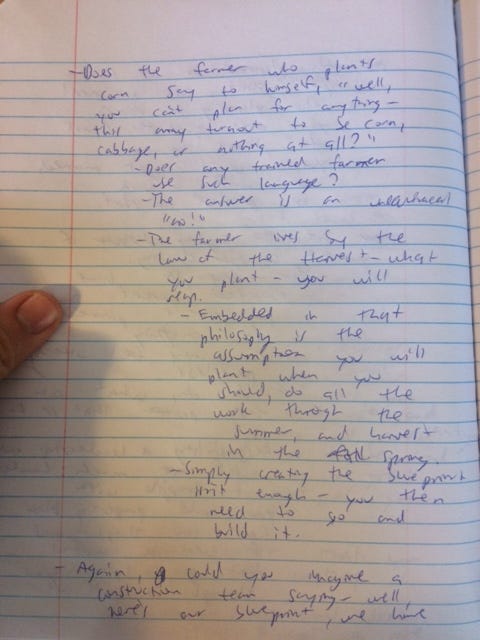 - Does the farmer who plants
corn say to himself, "well,
you can't plan for anything -
this may turnout to be corn,
cabbage, or nothing at all?"
- Does any trained farmer
use such language?
- The answer is an
"no!"
- The farmer lives by the
law of the Harvest - what
you plant - you will
reap.
- Embedded in that
philosophy is the
assumption you will
plant when you
should, do all the
work through the
summer, and harvest
in the spring.
- Simply creating the blueprint
isn't enough - you then
need to go and
build it.
- Again, could you imagine a
construction team saying - well,
here's our blueprint, we have